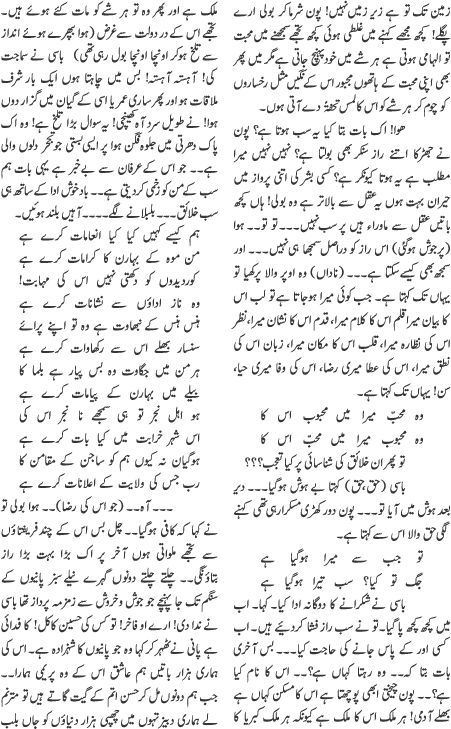 زمین تک تو ہے زیر زمیں نہیں! پون شرما کر بولی ارے
پگلے! کچھ مجھے کہنے میں غلطی ہوئی کچھ تجھے سمجھنے میں محبت
تو الہامی ہوتی ہے ہر شے میں خود پہنچ جاتی ہے مگر میں پھر
بھی اپنی محبت کے ہاتھوں مجبور اس کے نمکیں مثل رخساروں
کو چوم کر ہر شے کو اس کا لمس تحفتاً دے آتی ہوں۔
ھوا! اک بات بتا کیا یہ سب ہوتا ہے؟ پون
نے جھڑکا اتنے راز سنکر بھی بولتا ہے؟ نہیں نہیں میرا
مطلب ہے یہ ہوتا کیونکر ہے؟ کسی بشر کی اتنی پرواز میں
حیران بہت ہوں یہ عقل سے بالاتر ہے وہ بولی! ہاں کچھ
باتیں عقل سے ماوراء ہیں پر سب نہیں۔۔۔ تو تو۔۔ ھوا
(پرجوش ہوگئی) اس راز کو دراصل سمجھا ہی نہیں۔۔۔ اور
سمجھ بھی کیسے سکتا ہے۔۔۔ (ناداں) وہ اوپر والا پر کھا یا تو
یہاں تک کہتا ہے۔ جب کوئی میرا ہو جاتا ہے تو لب اس
کا بیان میرا قلم اس کا کلام میرا، قدم اس کا نشان میرا، نظر
اس کی نظارہ میرا، قلب اس کا مکان میرا، زبان اس کی
نطق میرا، اس کی عطا میری رضا، اس کی وفا میری حیا،
سن! یہاں تک کہتا ہے۔
وہ محبّ میرا میں محبوب اس کا
وہ محبوب میرا میں محبّ اس کا
تو پھر ان خلائق کی شناسائی پر کیا تعجب؟؟؟
باسی (حق، حق) کہتا بے ہوش ہوگیا۔۔۔ دیر
بعد ہوش میں آیا تو۔۔۔ پون دور کھڑی مسکرا رہی تھی کہنے
لگی حق والا اس سے کہتا ہے۔
تو جب سے میرا ہوگیا ہے
جگ تو کیا؟ سب تیرا ہوگیا ہے
باسی نے شکرانے کا دوگانہ ادا کیا۔ کہا۔ اب
میں کچھ کچھ پا گیا۔ تو نے سب راز فشا کر دئیے ہیں۔ اب
کسی اور کے پاس جانے کی حاجت کیا۔۔۔ بس آخری
بات بتا کہ۔۔ وہ رہتا کہاں ہے؟۔۔ اس کا نام کیا
ہے؟۔۔ پون چیختی ابھی پوچھتا ہے اس کا مسکن کہاں ہے
بھلے آدمی! ہر ملک اس کا ملک ہے کیونکہ ہر ملک کبریا کا
ملک ہے اور پھر وہ تو ہر شے کو مات کئے ہوئے ہیں۔
اس کے در دولت سے غرض (ہوا بپھرے ہوئے انداز
سے تلخ ہو کر اونچا اونچا بول رہی تھی) باسی نے سماجت
کی! آہستہ آہستہ! بس میں چاہتا ہوں ایک بار شرف
ملاقات ہو اور پھر ساری عمر یا اسی کے گیان میں گزار دوں
ھوا! نے طویل سرد آہ کھینچی! یہ سوال بڑا تلخ ہے! وہ اک
پاک دھرتی میں جلوہ فگن ہوا پر ایسی بستی جو تنجر دلوں والی
ہے۔۔ جو اس کے عرفان سے بے خبر ہے یہی بات ہم
سب کے من کو زخمی کر دیتی ہے۔ باد خوش ادا کے ساتھ ہی
سب خلائق۔۔۔ بلبلانے لگے۔۔۔۔ آہیں بلند ہوئیں۔
ہم کیسے کہیں کیا کیا انعامات کرے ہے
من موہ کے بہارن کا کرامات کرے ہے
کوردیدوں کو دکھتی نہیں اس کی مہابت!
وہ ناز اداؤں سے نشانات کرے ہے
ہنس ہنس کے نبھاوت ہے وہ تو اپنے پرائے
سنسار بھلے اس سے رکھاوات کرے ہے
ہر من میں جگاوت وہ بس پیار ہے بلما کا
بیلے میں بہارن کے پیامات کرے ہے
ہو اہل نجر تو ہی سمجھے نا نجر اس کی
اس شہر خرابت میں کیا بات کرے ہے
ہو گیان نہ کیوں ہم کو ساجن کے مقامن کا
رب جس کی ولایت کے اعلانات کرے ہے
۔۔۔ آہ۔۔ (جو اس کی رضا)۔۔ ہوا بولی تو
نے کہا کہ کافی ہوگیا۔۔ چل بس اس کے چند فریفتاؤں
سے تجھے ملواتی ہوں آخر پر اک بڑا بہت بڑا راز
بتاؤنگی۔۔ چلتے چلتے دونوں گہرے نیلے سبز پانیوں کے
سنگم تک جا پہنچے جو جوش و خروش سے زمزمہ پرداز تھا باسی
نے ندا دی! ارے او فاخر! تو کس کی حسین کا کل! کا فدائی
ہے پانی نے ٹھہر کر کہا وہ جو پانیوں کا شہزادہ ہے۔ اس کی
ہماری ہزار باتیں ہم عاشق اس کے وہ پریمی ہمارا۔۔
جب ہم دونوں مل کر حسن اتم کے گیت گاتے ہیں تو مترنم
لے ہماری دبیز تہوں میں چھپی ہزار دنیاؤں کو جاں بلب